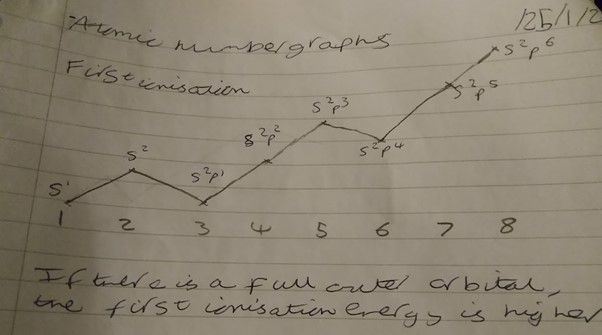 125/1/2
Atomic number graphs
First ionisation
s²p⁶
s²p⁵
s²p³
s²p²
s²p⁴
s²
s²p¹
s¹
1 2 3 4 5 6 7 8
If there is a full outer orbital,
the first ionisation energy is higher